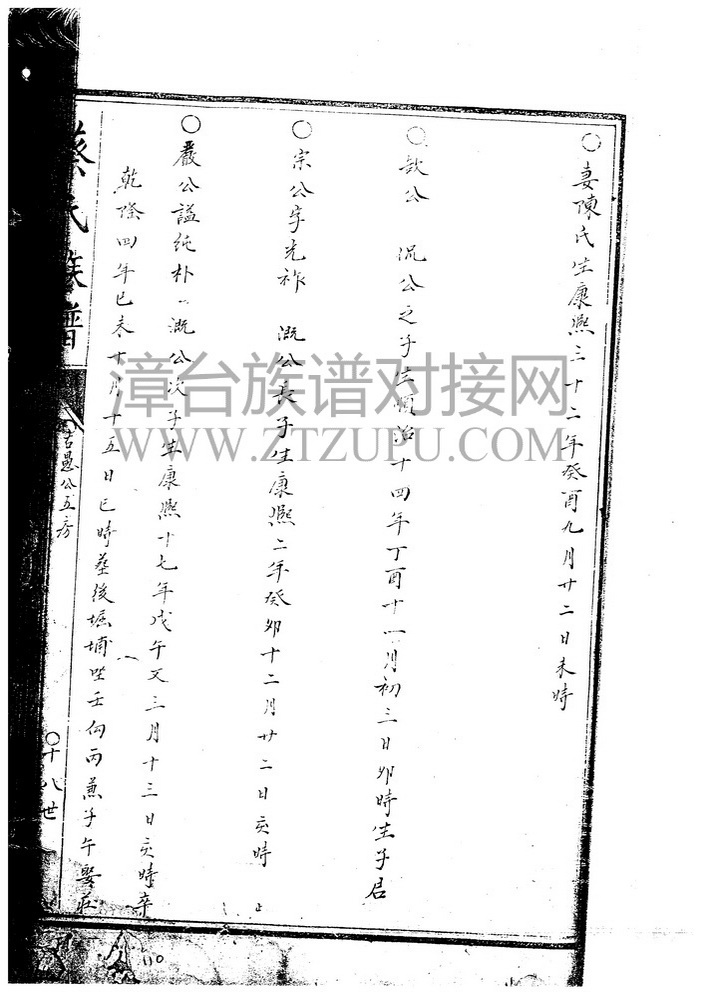 ○妻陳氏生康熙三十二年癸酉九月廿二日未時
○歆公 況公之子生順治十四年丁酉十一月初三日卯時生子君
○宗公字光祚 溉公長子生康熙二年癸卯十二月廿二日亥時
○嚴公謚純朴 溉公次子生康熙十七年戊午又三月十三日亥時卒
乾隆四年己未十月十五日巳時葬後堀埔坐壬向丙兼子午娶莊
蔡氏族譜
古愚公五房
○十八世
110
漳台族谱对接网
WWW.ZTZUPU.COM